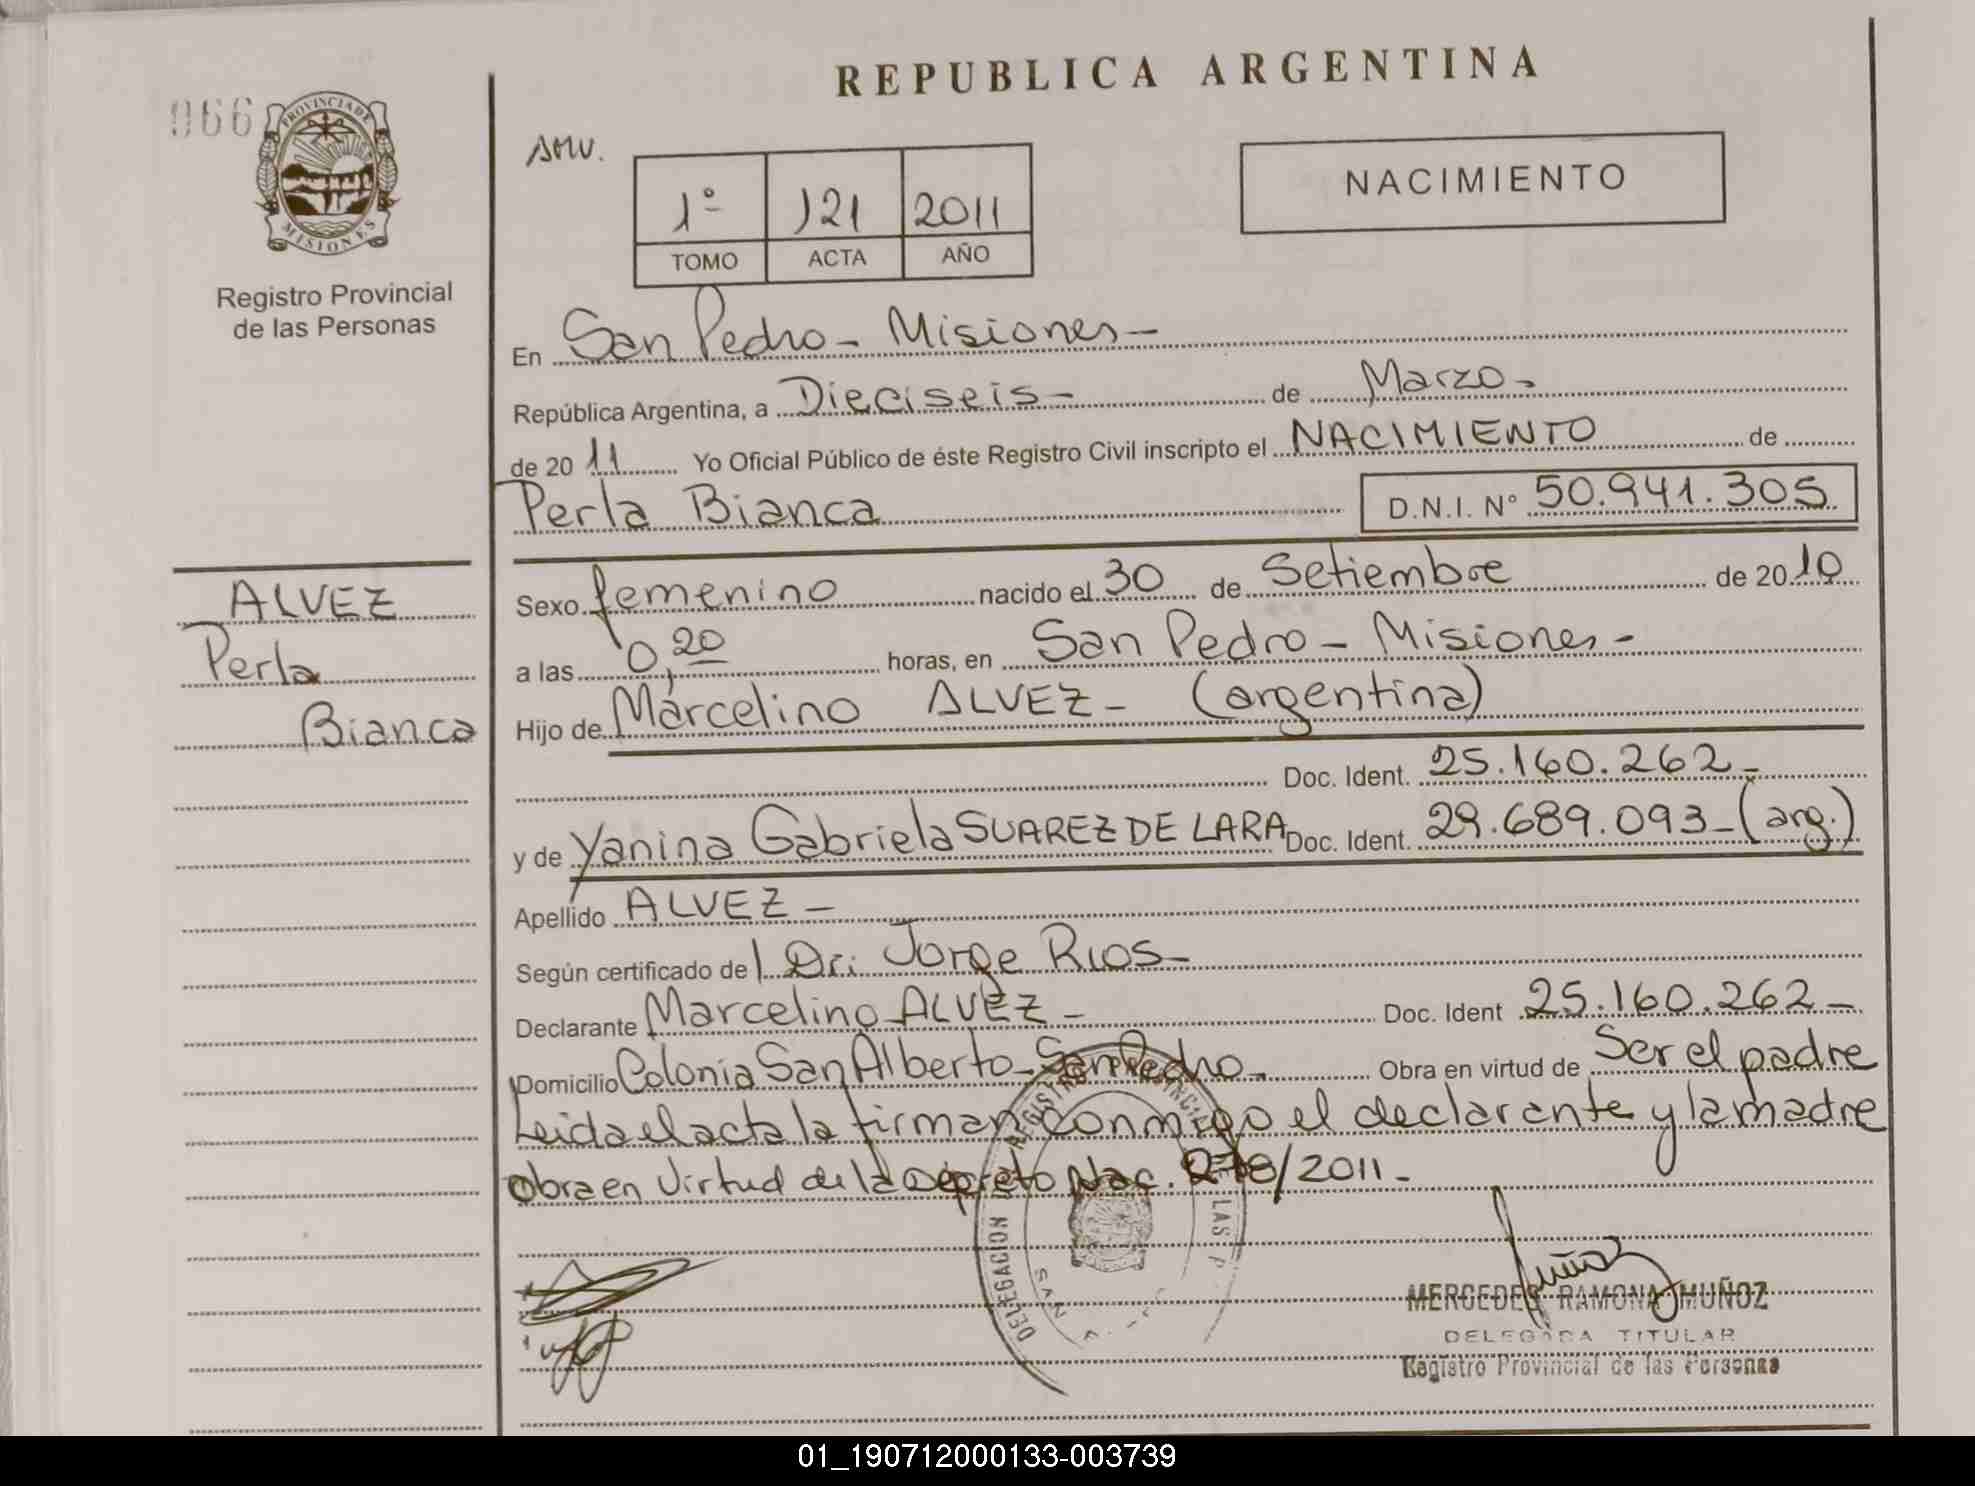 REPUBLICA ARGENTINA
066
PROVINCIA DE
MISIONES
Registro Provincial
de las Personas
1º 121 2011
TOMO ACTA AÑO
NACIMIENTO
En San Pedro - Misiones -
República Argentina, a Dieciseis - de Marzo -
de 20 11 Yo Oficial Público de éste Registro Civil inscripto el NACIMIENTO de
Perla Bianca D.N.I. Nº 50.941.305
ALVEZ
Perla
Bianca
Sexo femenino nacido el 30 de Setiembre de 20 10
a las 0,20 horas, en San Pedro - Misiones -
Hijo de Marcelino ALVEZ - (argentina)
Doc. Ident. 25.160.262 -
y de Yanina Gabriela SUAREZ DE LARA Doc. Ident. 29.689.093 - (arg.)
Apellido ALVEZ -
Según certificado del Dr: Jorge RIOS -
Declarante Marcelino ALVEZ - Doc. Ident 25.160.262 -
Domicilio Colonia San Alberto - San Pedro - Obra en virtud de Ser el padre
Leida el acta la firman conmigo el declarante y la madre
obra en virtud de la Decreto Nac. 278/2011 -
DELEGACION
MERCEDES RAMONA MUÑOZ
DELEGADA TITULAR
Registro Provincial de las Personas
01_190712000133-003739